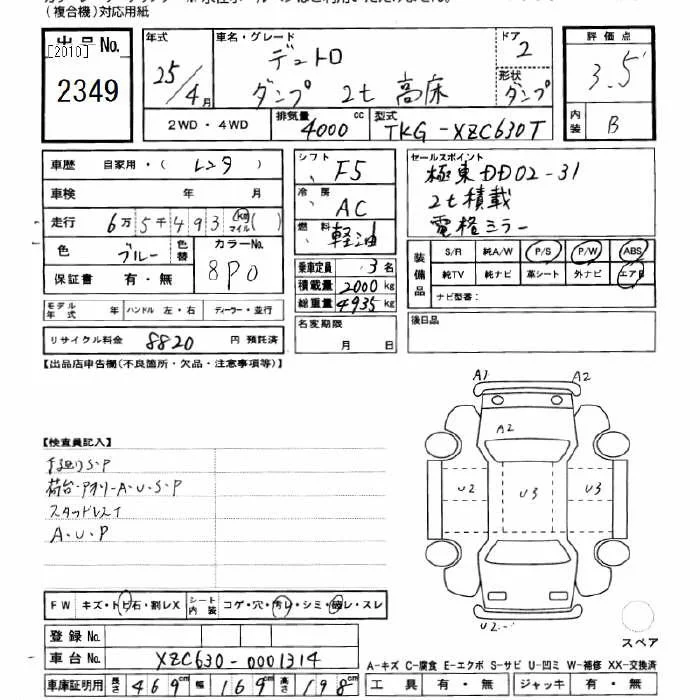 (複合機)対応用紙
出品No.
[2010]
2349
年式
25/4月
車名・グレード
デュトロ
ダンプ 2t 高床
ドア
2
形状
ダンプ
2WD・4WD
排気量 4000 cc
型式 TKG-XZC630T
評価点
3.5
内装 B
車歴 自家用・( レンタ )
車検 年 月
走行 6万5千493 km マイル( )
色 ブルー 色替 カラーNo. 8P0
保証書 有・無
モデル年式 年 ハンドル 左・右 ディーラー・並行
リサイクル料金 8820 円 預託済
シフト F5
冷房 AC
燃料 軽油
乗車定員 3名
積載量 2000kg
総重量 4935kg
名変期限
月 日
セールスポイント
極東DD02-31
2t積載
電格ミラー
装備品
S/R 純A/W P/S P/W ABS
純TV 純ナビ 革シート 外ナビ エアB
ナビ型番:
後日品
【出品店申告欄(不良箇所・欠品・注意事項等)】
A1 A2
A2
U2 U3 U3
U2
スペア
【検査員記入】
S・P
荷台・アオリ-A・U・S・P
スタッドレス
A・U・P
FW キズ・トビ石・割レX シート内装 コゲ・穴・汚レ・シミ・破レ・スレ
登録No.
車台No. XZC630-0001314
車庫証明用 長さ 469cm 幅 169cm 高さ 198cm
A-キズ C-腐食 E-エクボ S-サビ U-凹ミ W-補修 XX-交換済
工具 有・無 ジャッキ 有・無